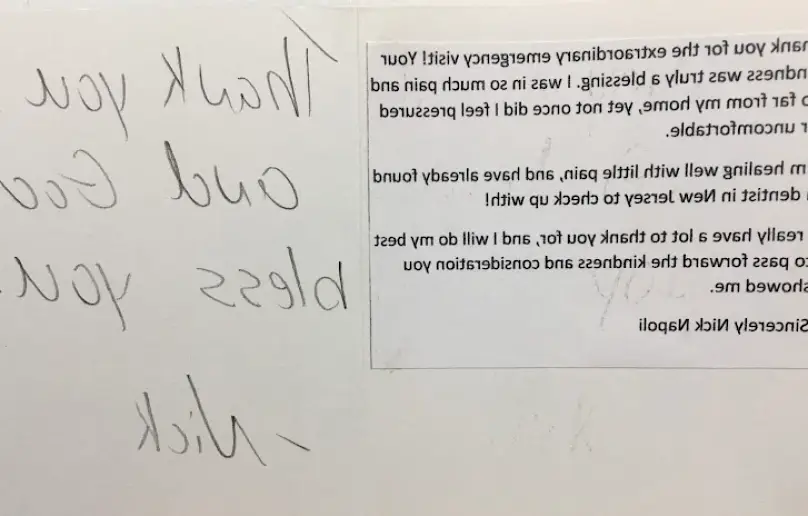 ank you for the extraordinary emergency visit! Your
ndness was truly a blessing. I was in so much pain and
o far from my home, yet not once did I feel pressured
r uncomfortable.
m healing well with little pain, and have already found
dentist in New Jersey to check up with!
really have a lot to thank you for, and I will do my best
to pass forward the kindness and consideration you
showed me.
Sincerely Nick Napoli
Thank you
and God
bless you.
- Nick